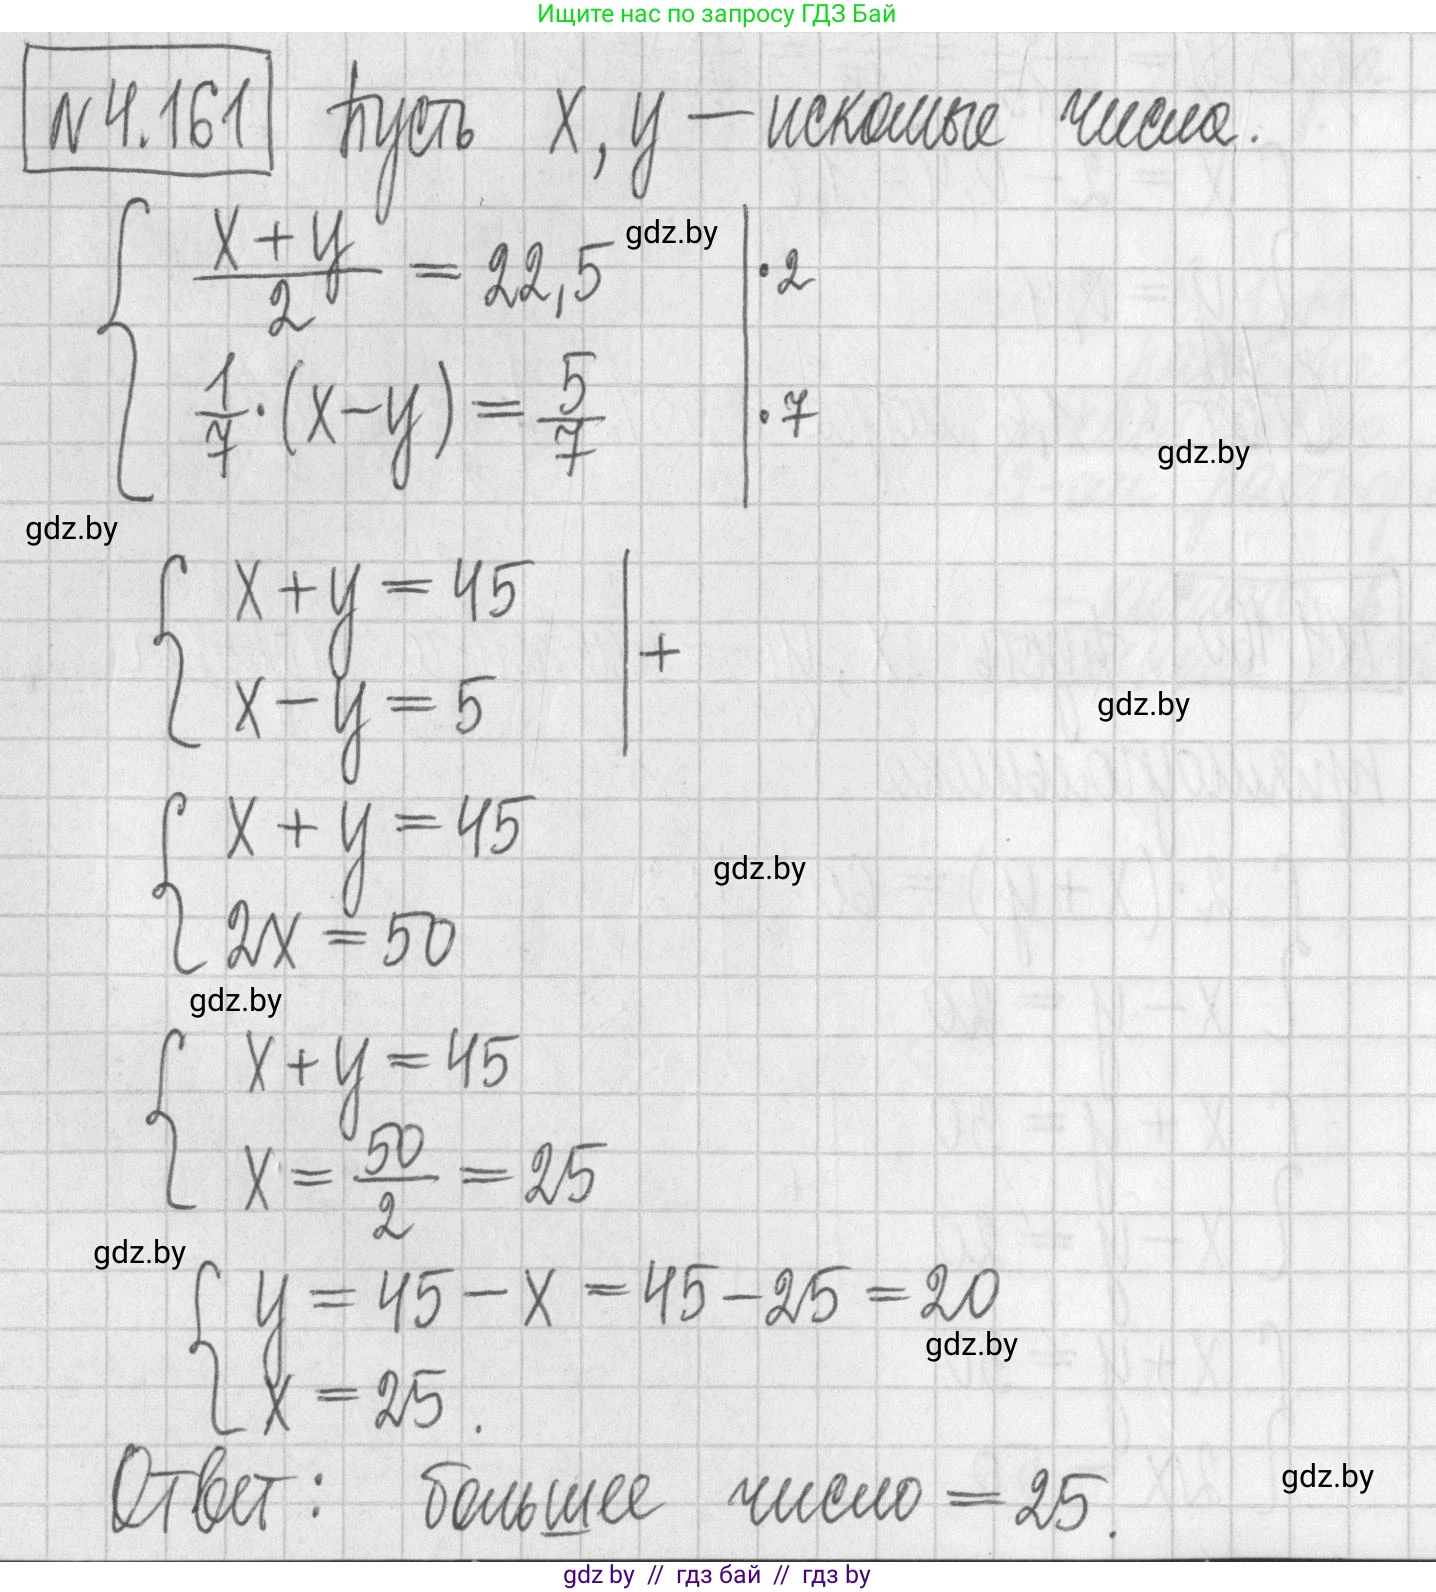 Ищите нас по запросу ГДЗ Бай
N 4.161 Пусть x, y — искомые числа.
x + y / 2 = 22,5 | · 2
gdz.by
1/7 · (x − y) = 5/7 | · 7
gdz.by
gdz.by
x + y = 45 | +
x − y = 5
gdz.by
x + y = 45
gdz.by
2x = 50
gdz.by
x + y = 45
x = 50/2 = 25
gdz.by
y = 45 − x = 45 − 25 = 20
gdz.by
x = 25.
Ответ: большее число = 25.
gdz.by
gdz by // гдз бай // гдз by